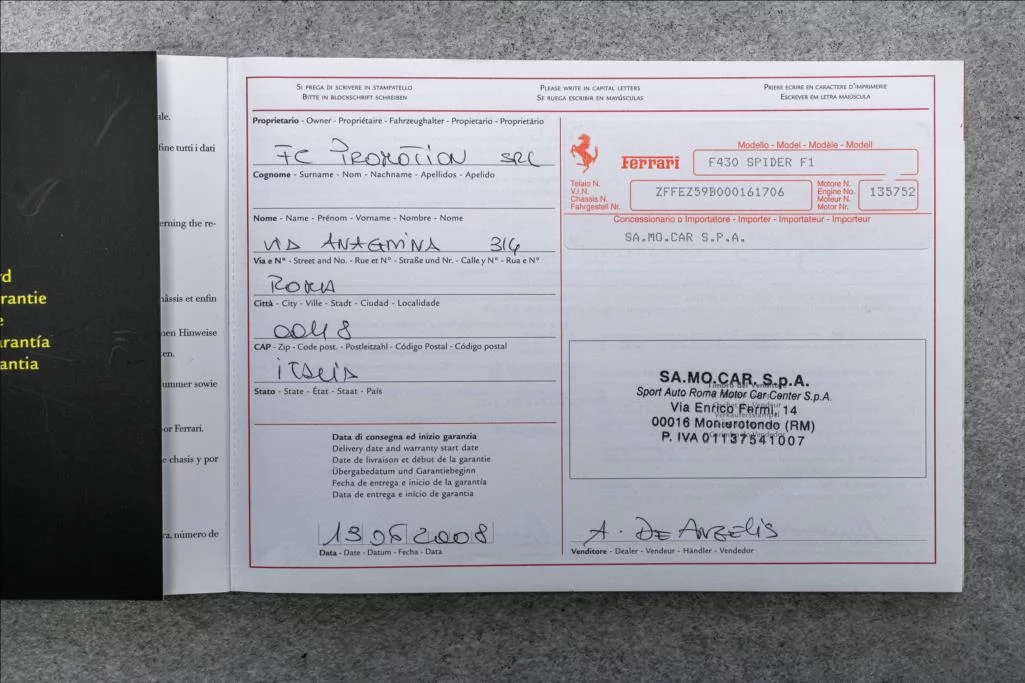 rd
rantie
e
arantía
antia
ale.
fine tutti i dati
erning the re-
hâssis et enfin
nen Hinweise
en.
ummer sowie
or Ferrari.
e chasis y por
ra, número de
Si prega di scrivere in stampatello
Bitte in Blockschrift schreiben
Please write in capital letters
Se ruega escribir en mayúsculas
Priere ecrire en caractere d'imprimerie
Escrever em letra maiúscula
Proprietario - Owner - Propriétaire - Fahrzeughalter - Propietario - Proprietário
FC PROMOTION SRL
Cognome - Surname - Nom - Nachname - Apellidos - Apelido
Nome - Name - Prénom - Vorname - Nombre - Nome
VIA ANAGNINA 314
Via e N° - Street and No. - Rue et N° - Straße und Nr. - Calle y N° - Rua e N°
ROMA
Città - City - Ville - Stadt - Ciudad - Localidade
CAP - Zip - Code post. - Postleitzahl - Código Postal - Código postal
ITALIA
Stato - State - État - Staat - País
Data di consegna ed inizio garanzia
Delivery date and warranty start date
Date de livraison et début de la garantie
Übergabedatum und Garantiebeginn
Fecha de entrega e inicio de la garantía
Data de entrega e início de garantia
13 06 2008
Data - Date - Datum - Fecha - Data
Modello - Model - Modèle - Modell
Ferrari F430 SPIDER F1
Telaio N.
V.I.N.
Chassis N.
Fahrgestell Nr.
ZFFEZ59B000161706
Motore N.
Engine No.
Moteur N.
Motor Nr.
135752
Concessionario o Importatore - Importer - Importateur - Importeur
SA.MO.CAR S.P.A.
SA.MO.CAR. S.p.A.
Sport Auto Roma Motor Car Center S.p.A.
Via Enrico Fermi, 14
00016 Monterotondo (RM)
P. IVA 01137541007
A. DE ANGELIS
Venditore - Dealer - Vendeur - Händler - Vendedor